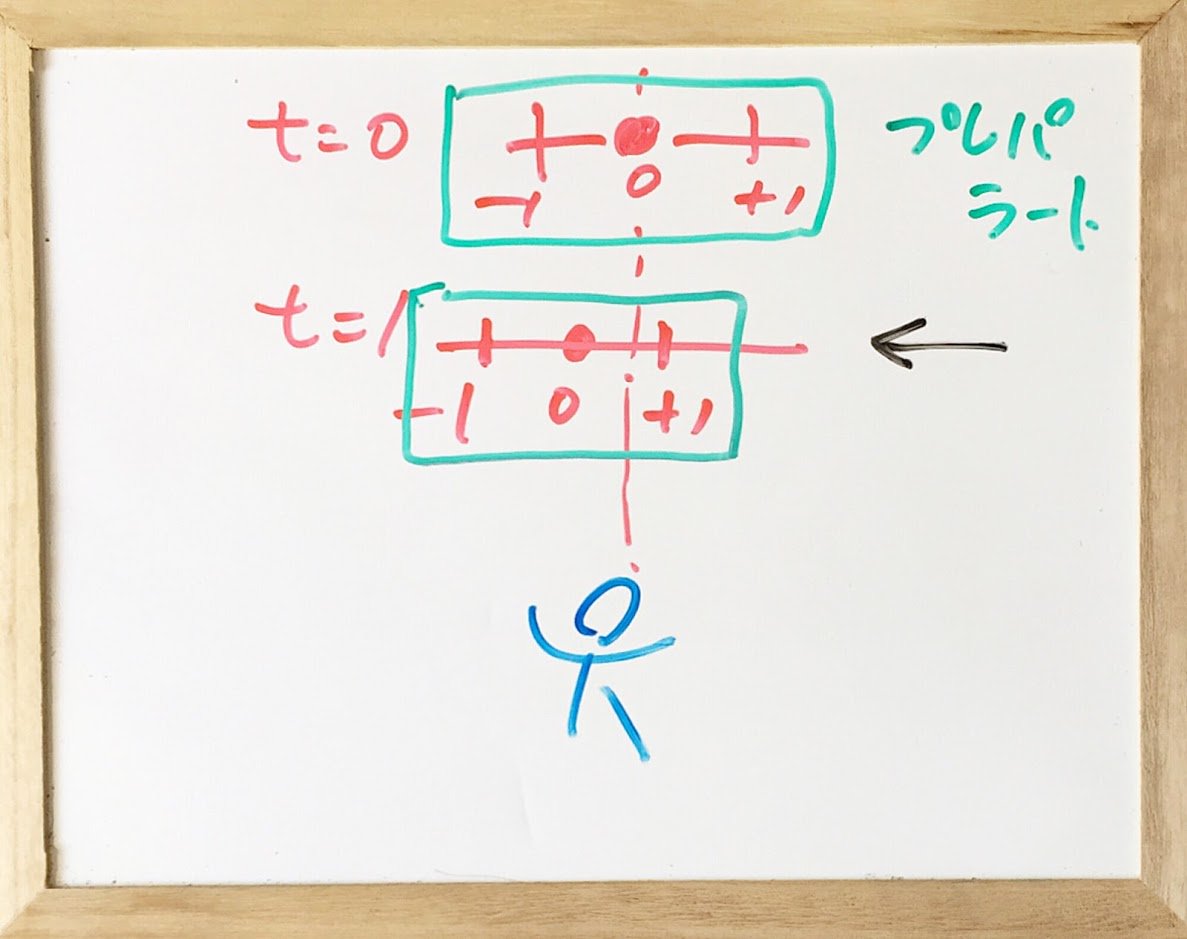 t=0
-1 0 +1
プレパ
ラート
t=1
-1 0 +1